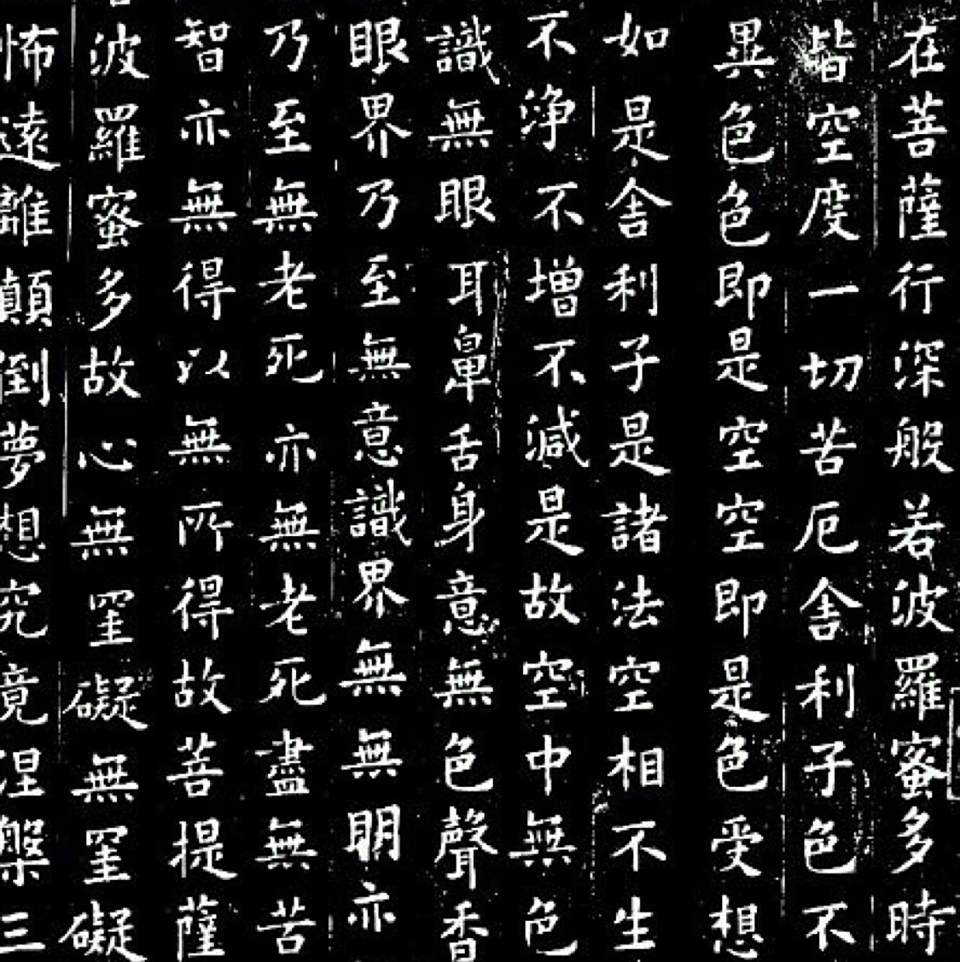 在菩薩行深般若波羅蜜多時
皆空度一切苦厄舍利子色不
異色色即是空空即是色受想
如是舍利子是諸法空相不生
不淨不增不減是故空中無色
識無眼耳鼻舌身意無色聲香
眼界乃至無意識界無無明亦
乃至無老死亦無老死盡無苦
智亦無得以無所得故菩提薩
波羅蜜多故心無罣礙無罣礙
怖遠離顛倒夢想究竟涅槃三